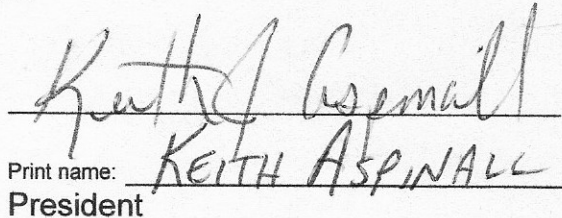 Keith J Aspinall
Print name: KEITH ASPINALL
President